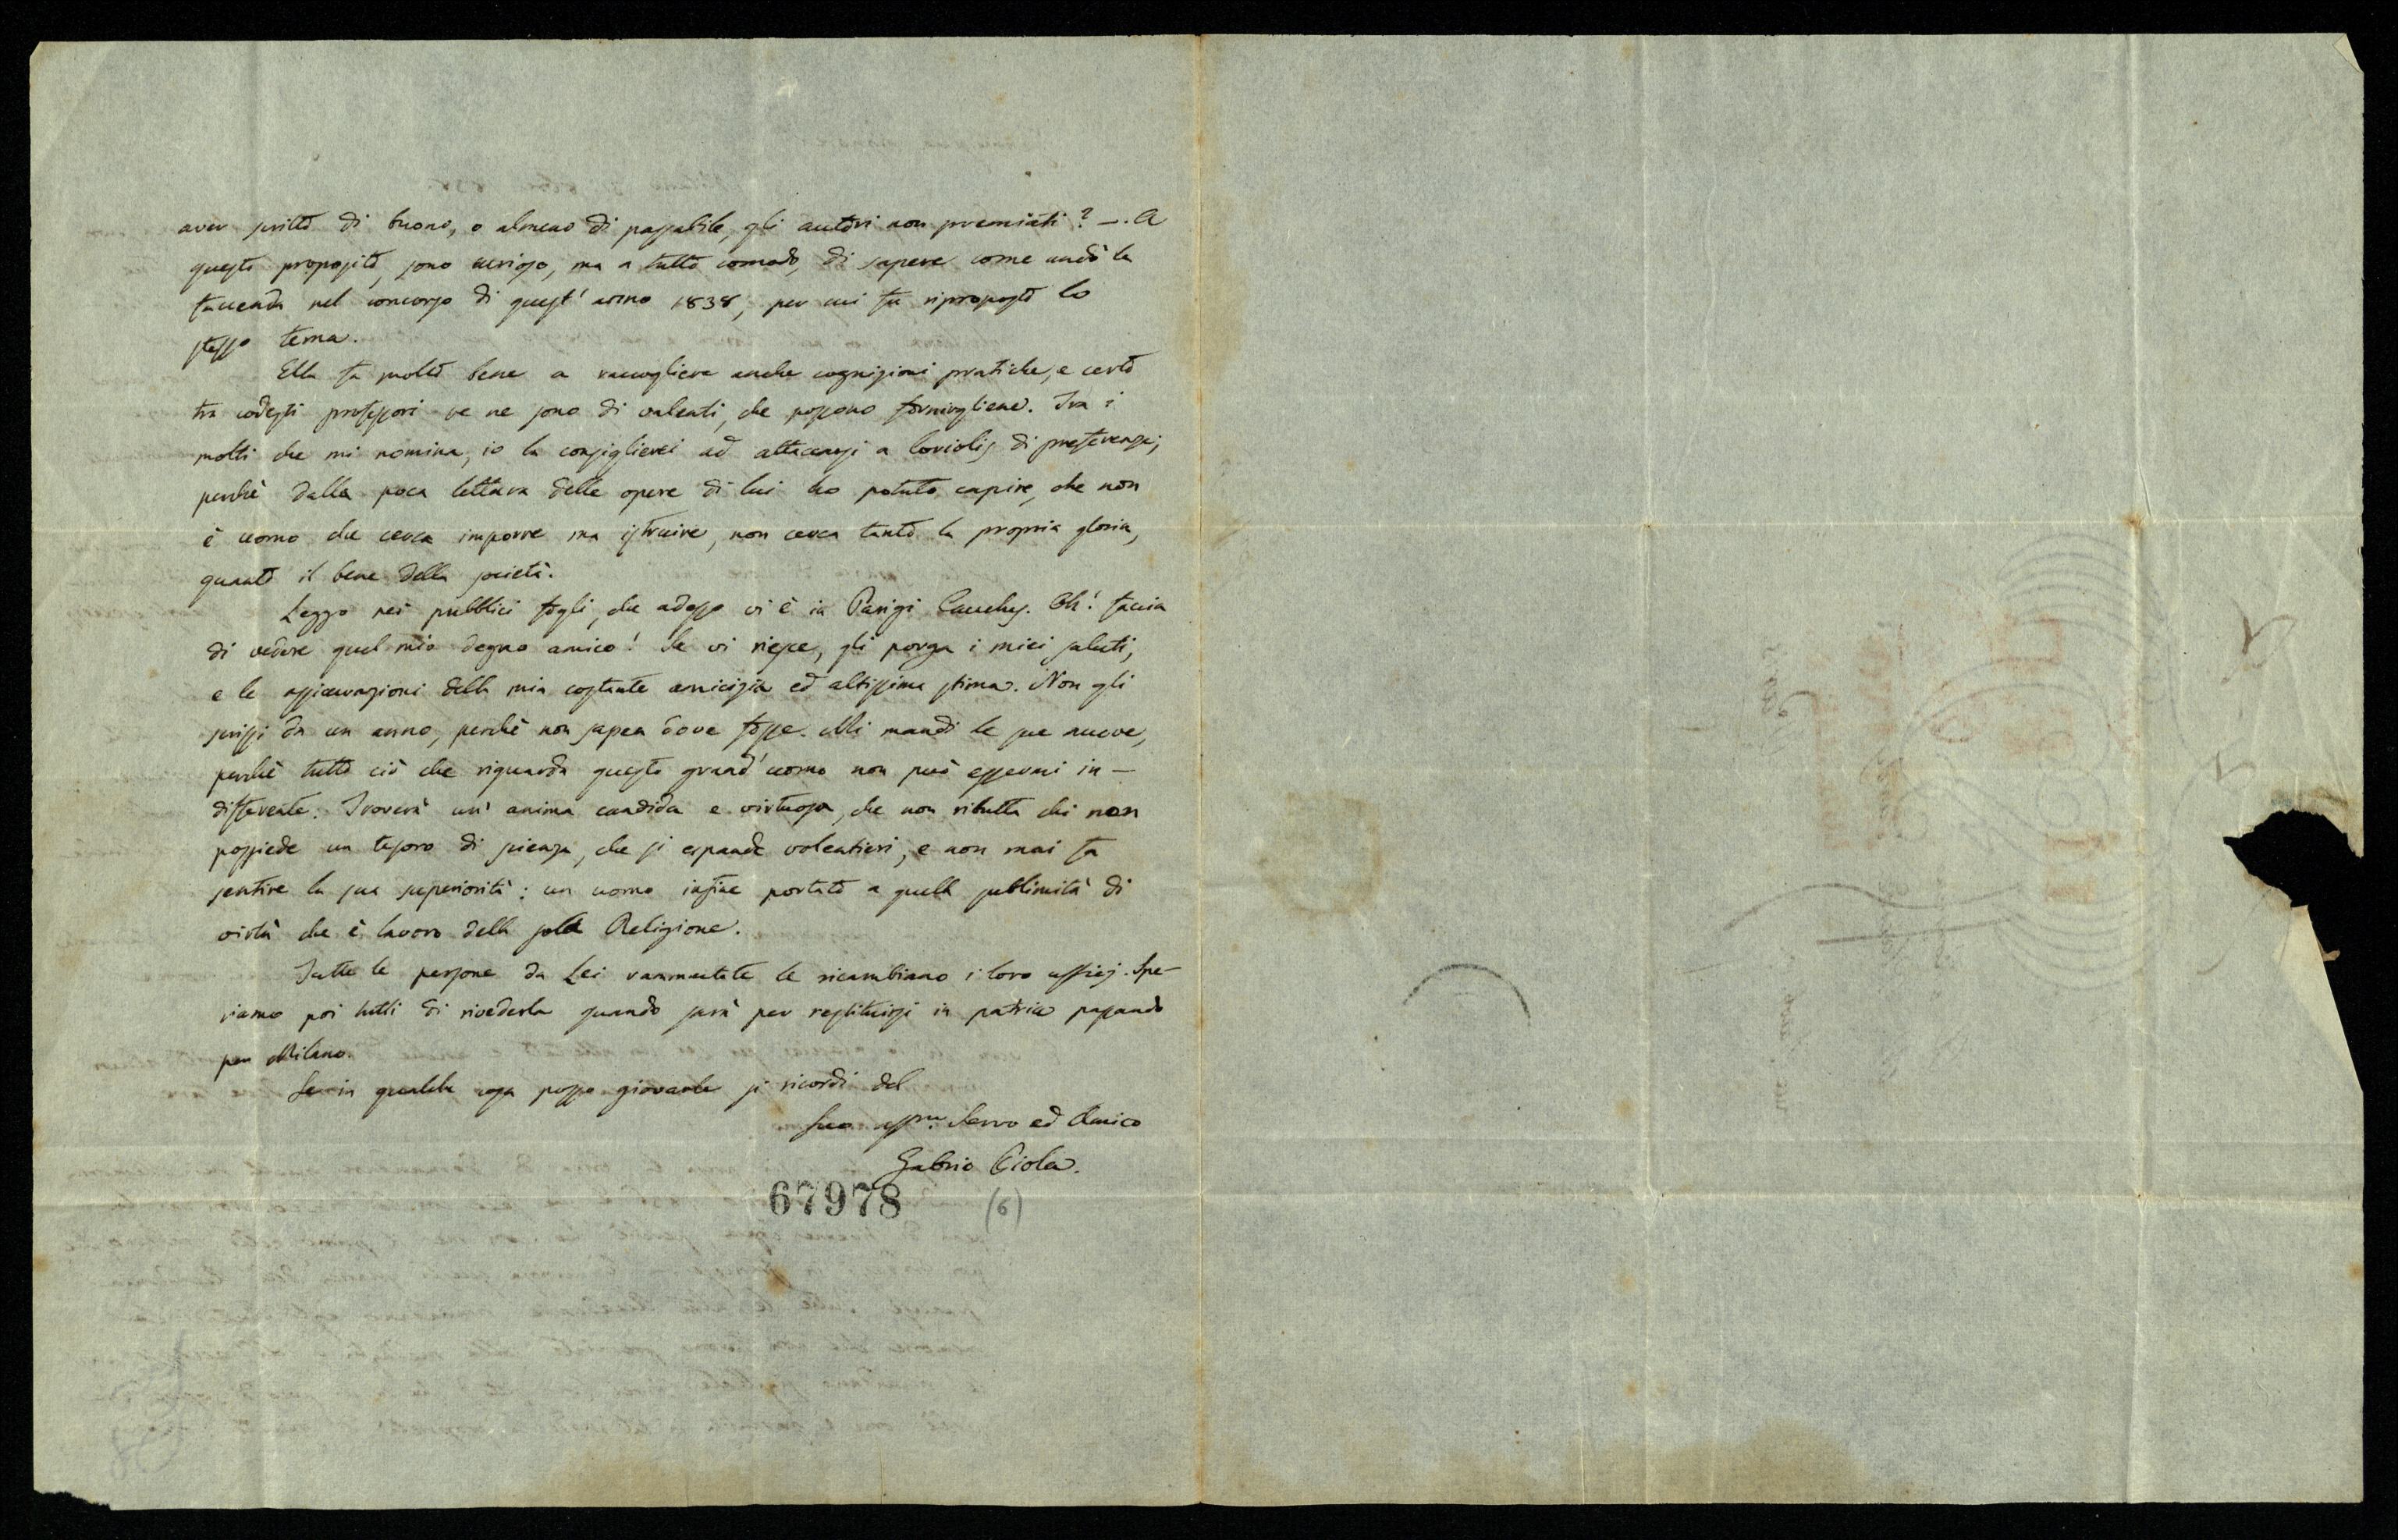 aver scritto di buono, o almeno di passabile, gli autori non premiati? —. A
questo proposito, sono curioso, ma a tutto comodo, di sapere come andò la
faccenda nel concorso di quest'anno 1838, per cui fu riproposto lo
stesso tema.
Ella fa molto bene a raccogliere anche cognizioni pratiche, e certo
tra codesti professori ve ne sono di valenti, che possono fornirgliene. Tra i
molti che mi nomina, io la consiglierei ad attaccarsi a Coriolis di preferenza;
perchè dalla poca lettura delle opere di lui ho potuto capire, che non
è uomo che cerca imporre ma istruire, non cerca tanto la propria gloria,
quanto il bene della società.
Leggo nei pubblici fogli, che adesso vi è in Parigi Cauchy. Oh! faccia
di vedere quel mio degno amico! Se vi riesce, gli porga i miei saluti,
e le assicurazioni della mia costante amicizia ed altissima stima. Non gli
scrissi da un anno, perchè non sapea dove fosse. Mi mandi le sue nuove,
perchè tutto ciò che riguarda questo grand'uomo non può essermi in-
differente. Troverà un'anima candida e virtuosa, che non ributta chi non
possiede un tesoro di scienza, che si espande volentieri, e non mai fa
sentire la sua superiorità: un uomo infine portato a quella sublimità di
virtù che è lavoro della sola Religione.
Tutte le persone da Lei rammentate le ricambiano i loro ufficj. Spe-
riamo poi tutti di rivederla quando sarà per restituirsi in patria passando
per Milano.
Se in qualche cosa posso giovarle si ricordi del
Suo affmo. Servo ed Amico
Gabrio Piola.
67978
(6)